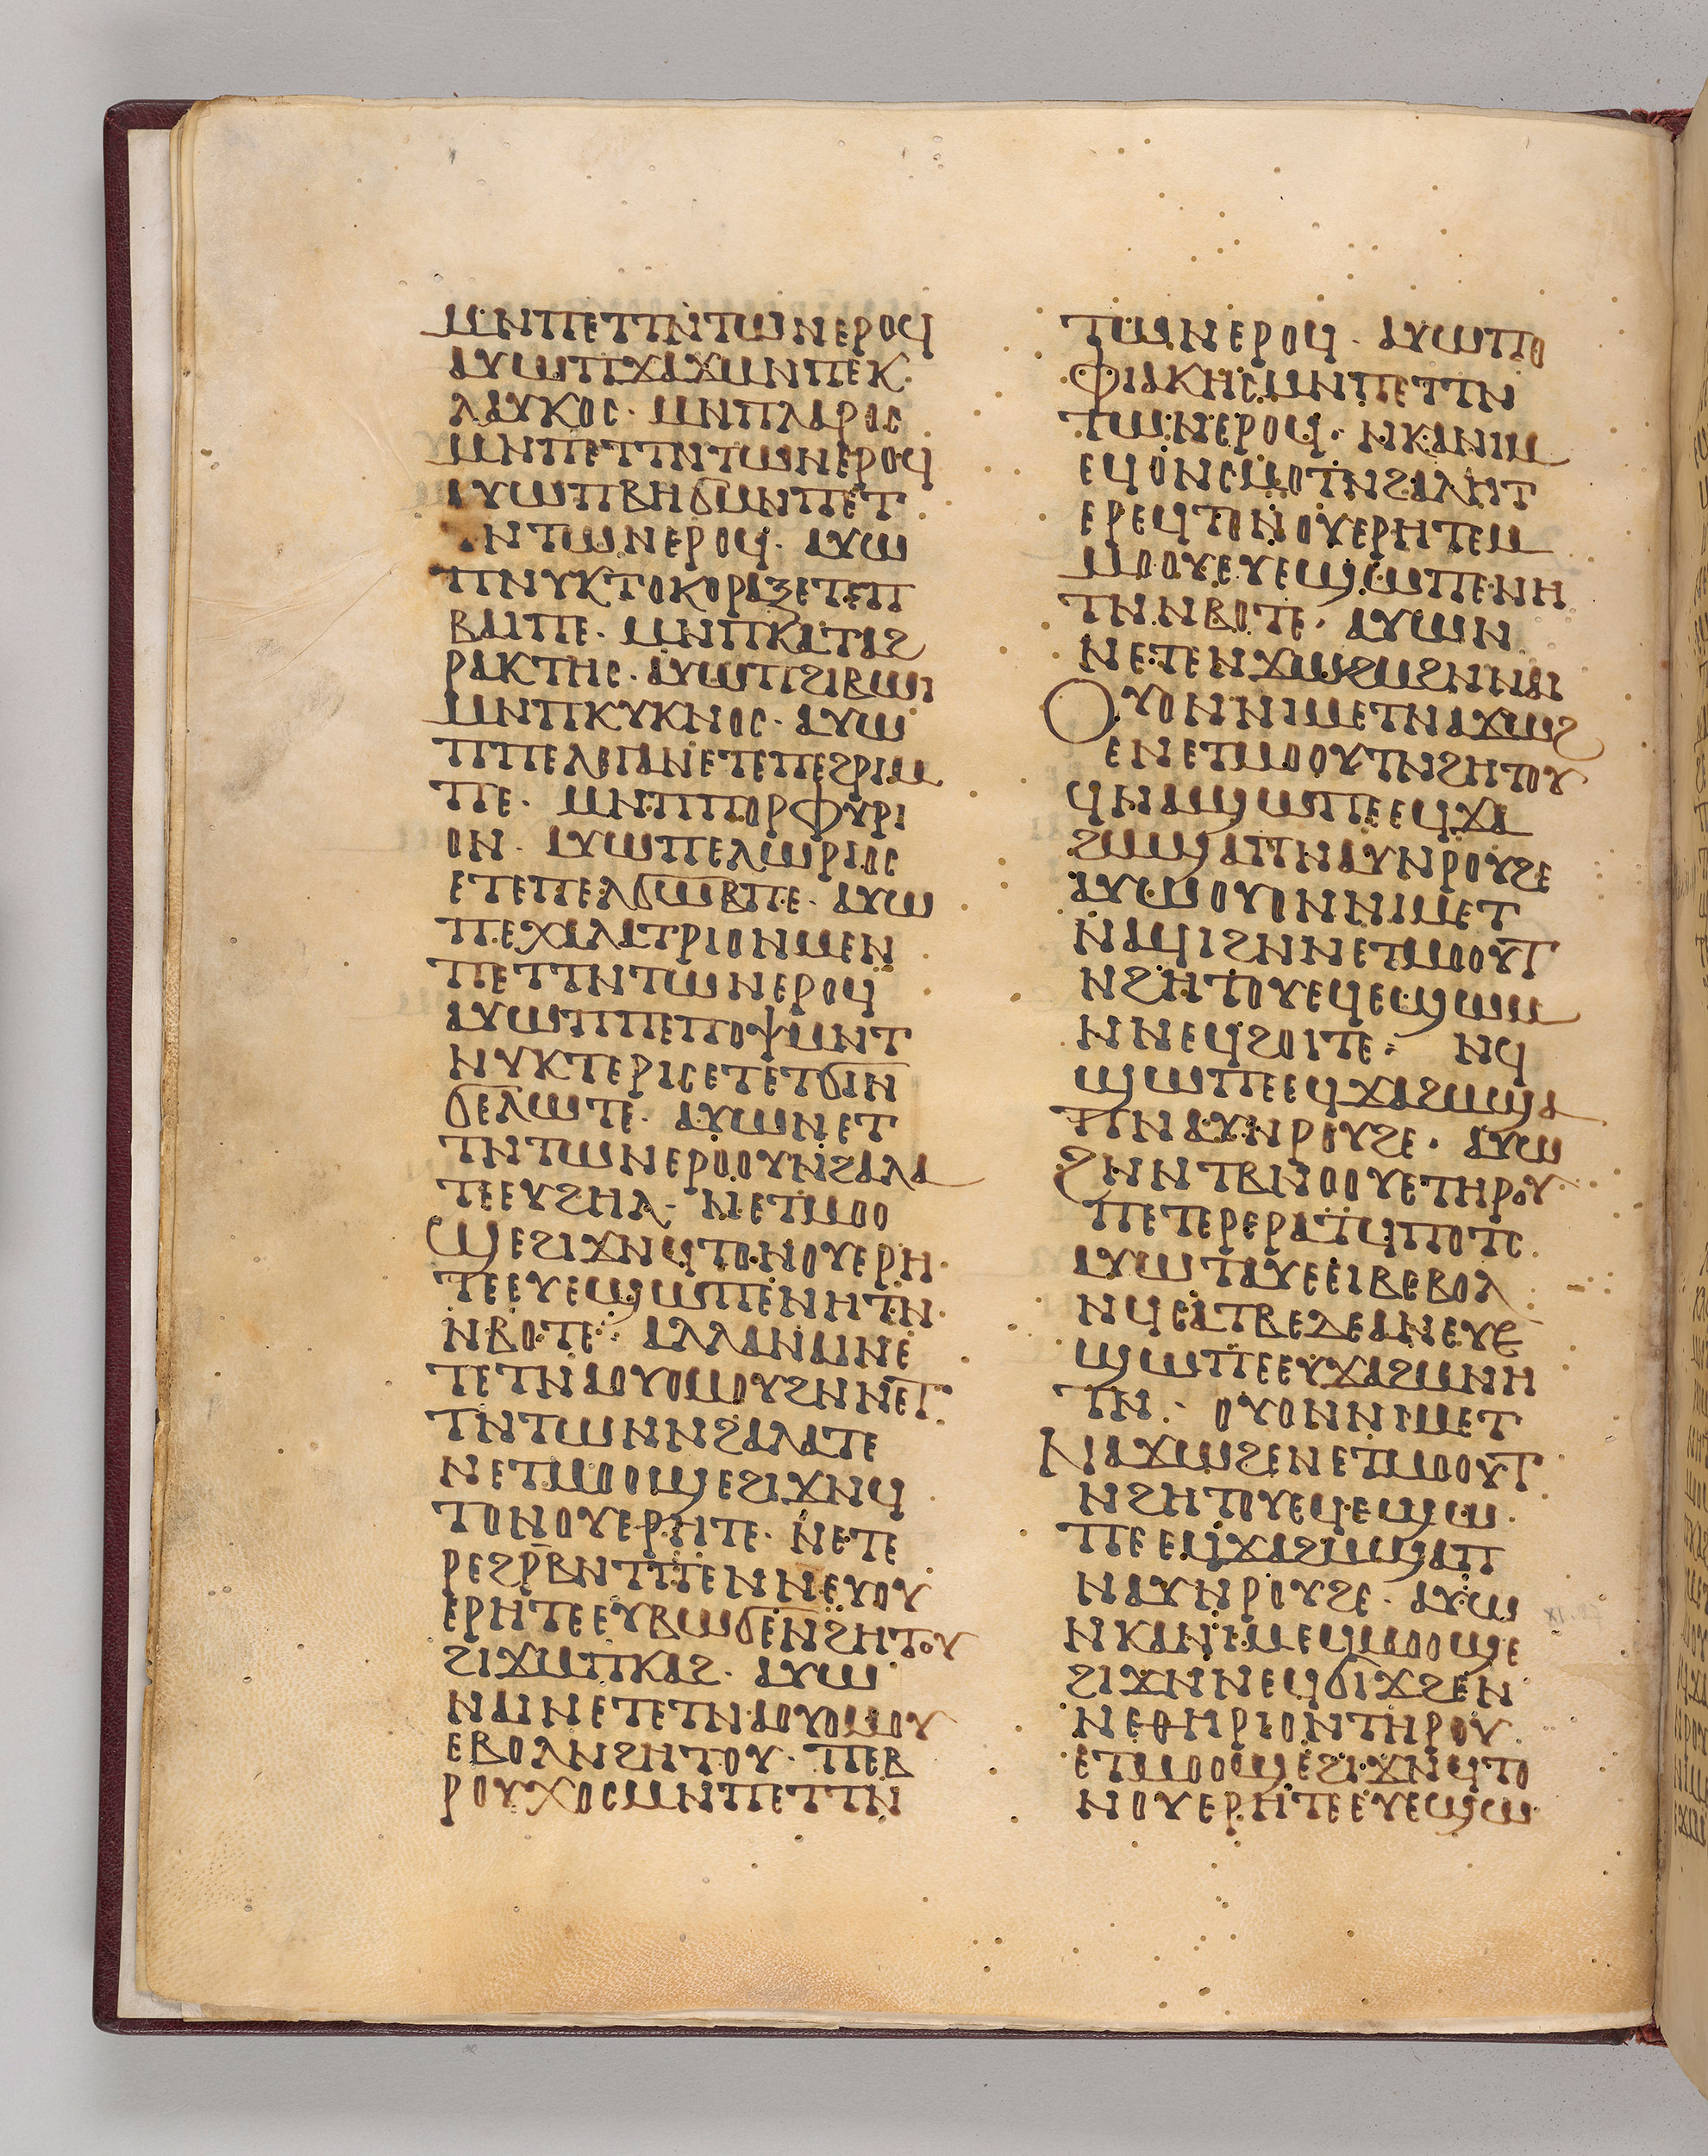 ⲙⲛⲡⲉⲧⲧⲛⲧⲱⲛⲉⲣⲟϥ
ⲁⲩⲱⲡϫⲁϫⲙⲛⲡⲉⲕ
ⲗⲁⲩⲕⲟⲥ· ⲙⲛⲡⲗⲁⲣⲟⲥ
ⲙⲛⲡⲉⲧⲧⲛⲧⲱⲛⲉⲣⲟϥ
ⲁⲩⲱⲡⲃⲏϭⲙⲛⲡⲉⲧ
ⲛⲧⲱⲛⲉⲣⲟϥ· ⲁⲩⲱ
ⲡⲛⲩⲕⲧⲟⲕⲟⲣⲁⲝⲉⲧⲉⲡ
ⲃⲁⲓⲡⲉ· ⲙⲛⲡⲕⲁⲧⲁϩ
ⲣⲁⲕⲧⲏⲥ· ⲁⲩⲱⲡϩⲓⲃⲱⲓ
ⲙⲛⲡⲕⲩⲕⲛⲟⲥ· ⲁⲩⲱ
ⲡⲡⲉⲗⲉⲓⲁⲛⲉⲧⲉⲡⲉϩⲣⲓⲙ
ⲡⲉ· ⲙⲛⲡⲡⲟⲣⲫⲩⲣⲓ
ⲟⲛ· ⲁⲩⲱⲡⲉⲗⲱⲣⲓⲟⲥ
ⲉⲧⲉⲡⲉⲗϭⲱⲃⲡⲉ· ⲁⲩⲱ
ⲡⲉⲭⲁⲗⲁⲧⲣⲓⲟⲛⲙⲉⲛ
ⲡⲉⲧⲧⲛⲧⲱⲛⲉⲣⲟϥ
ⲁⲩⲱⲡⲡⲉⲡⲟⲯⲙⲛⲧ
ⲛⲩⲕⲧⲉⲣⲓⲥⲉⲧⲉⲧϭⲓⲛ
ϭⲉⲗⲱⲧⲉ· ⲁⲩⲱⲛⲉⲧ
ⲧⲛⲧⲱⲛⲉⲣⲟⲟⲩⲛϩⲁⲗⲁ
ⲧⲉⲉⲩϩⲏⲗ· ⲛⲉⲧⲙⲟⲟ
ϣⲉϩⲓϫⲛϥⲧⲟⲛⲟⲩⲉⲣⲏ
ⲧⲉⲉⲩⲉϣⲱⲡⲉⲛⲏⲧⲛ
ⲛⲃⲟⲧⲉ· ⲁⲗⲗⲁⲛⲁⲓⲛⲉ
ⲧⲉⲧⲛⲁⲟⲩⲟⲙⲟⲩϩⲛⲛⲉⲧ
ⲧⲛⲧⲱⲛⲛϩⲁⲗⲁⲧⲉ
ⲛⲉⲧⲙⲟⲟϣⲉϩⲓϫⲛϥ
ⲧⲟⲛⲟⲩⲉⲣⲏⲧⲉ· ⲛⲉⲧⲉ
ⲣⲉϩⲣⲃⲛⲧⲡⲉⲛⲛⲉⲩⲟⲩ
ⲉⲣⲏⲧⲉⲉⲩⲃⲱϭⲉⲛϩⲏⲧⲟⲩ
ϩⲓϫⲙⲡⲕⲁϩ· ⲁⲩⲱ
ⲛⲁⲓⲛⲉⲧⲉⲧⲛⲁⲟⲩⲟⲙⲟⲩ
ⲉⲃⲟⲗⲛϩⲏⲧⲟⲩ· ⲡⲉⲃ
ⲣⲟⲩⲭⲟⲥⲙⲛⲡⲉⲧⲧⲛ
ⲧⲱⲛⲉⲣⲟϥ· ⲁⲩⲱⲡⲟ
ⲫⲓⲁⲕⲏⲥⲙⲛⲡⲉⲧⲧⲛ
ⲧⲱⲛⲉⲣⲟϥ· ⲛⲕⲁⲛⲓⲙ
ⲉϥⲟⲛⲥⲙⲟⲧⲛϩⲁⲗⲏⲧ
ⲉⲣⲉϥⲧⲟⲛⲟⲩⲉⲣⲏⲧⲉⲙ
ⲙⲟⲟⲩⲉⲩⲉϣⲱⲡⲉⲛⲏ
ⲧⲛⲛⲃⲟⲧⲉ· ⲁⲩⲱⲛ
ⲛⲉⲧⲉⲛϫⲱϩⲙϩⲛⲛⲁⲓ
ⲟⲩⲟⲛⲛⲓⲙⲉⲧⲛⲁϫⲱϩ
ⲉⲛⲉⲧⲙⲟⲟⲩⲧⲛϩⲏⲧⲟⲩ
ϥⲛⲁϣⲱⲡⲉⲉϥϫⲁ
ϩⲙϣⲁⲡⲛⲁⲩⲛⲣⲟⲩϩⲉ
ⲁⲩⲱⲟⲩⲟⲛⲛⲓⲙⲉⲧ
ⲛⲁϥⲓϩⲛⲛⲉⲧⲙⲟⲟⲩⲧ
ⲛϩⲏⲧⲟⲩⲉϥⲉϣⲱⲙ
ⲛⲛⲉϥϩⲟⲓⲧⲉ· ⲛϥ
ϣⲱⲡⲉⲉϥϫⲁϩⲙϣⲁ
ⲡⲛⲁⲩⲛⲣⲟⲩϩⲉ· ⲁⲩⲱ
ϩⲛⲛⲧⲃⲛⲟⲟⲩⲉⲧⲏⲣⲟⲩ
ⲡⲉⲧⲉⲣⲉⲣⲁⲧϥⲡⲟⲧⲥ
ⲁⲩⲱⲧⲁⲩⲉⲉⲓⲃⲉⲃⲟⲗ
ⲛϥⲥⲁⲧⲃⲉⲇⲉⲁⲛⲉⲩⲉ
ϣⲱⲡⲉⲉⲩϫⲁϩⲙⲛⲏ
ⲧⲛ· ⲟⲩⲟⲛⲛⲓⲙⲉⲧ
ⲛⲁϫⲱϩⲉⲛⲉⲧⲙⲟⲟⲩⲧ
ⲛϩⲏⲧⲟⲩⲉϥⲉϣⲱ
ⲡⲉⲉϥϫⲁϩⲙϣⲁⲡ
ⲛⲁⲩⲛⲣⲟⲩϩⲉ· ⲁⲩⲱ
ⲛⲕⲁⲛⲓⲙⲉϥⲙⲟⲟϣⲉ
ϩⲓϫⲛⲛⲉϥϭⲓϫϩⲉⲛ
ⲛⲉⲑⲏⲣⲓⲟⲛⲧⲏⲣⲟⲩ
ⲉⲧⲙⲟⲟϣⲉϩⲓϫⲛϥⲧⲟ
ⲛⲟⲩⲉⲣⲏⲧⲉⲉⲩⲉϣⲱ